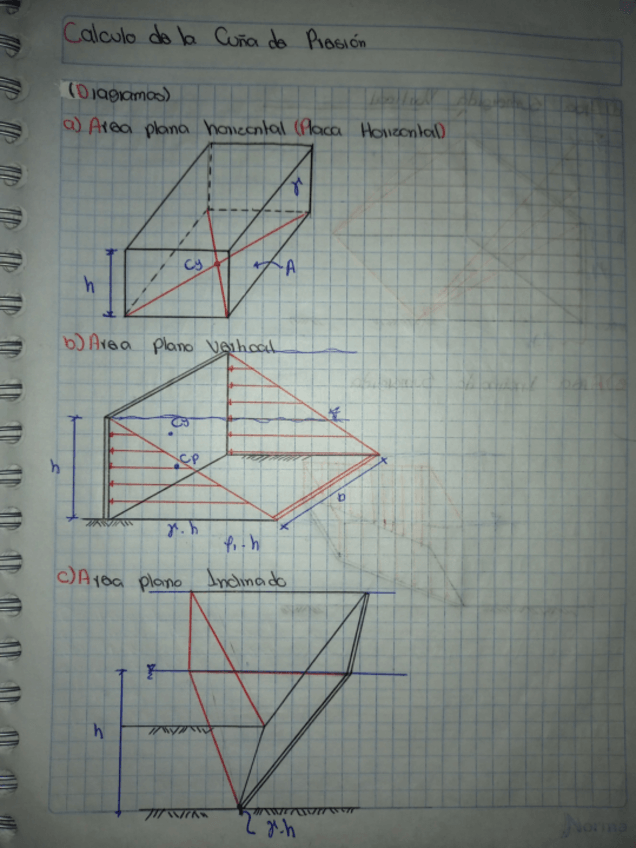 Calculo de la Cuña de Presión
(Diagramas)
a) Area plana horizontal (Placa Horizontal)
γ
Cg
A
h
b) Area plano Vertical
Cg
Cp
h
b
γ.h
c) Area plano Inclinado
h
γ.h